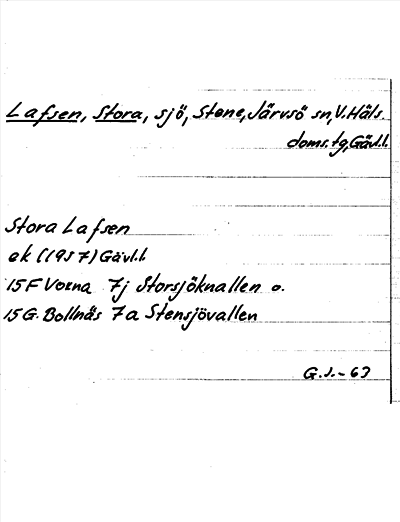 Lafsen, Stora, sjö, Stene, Järvsö sn, V. Häls.
doms. tg, Gävl.l.
Stora Lafsen
ek (1957) Gävl.l
15F Voxna 7j Storsjöknallen o.
15G. Bollnäs 7a Stensjövallen
G.J.-63